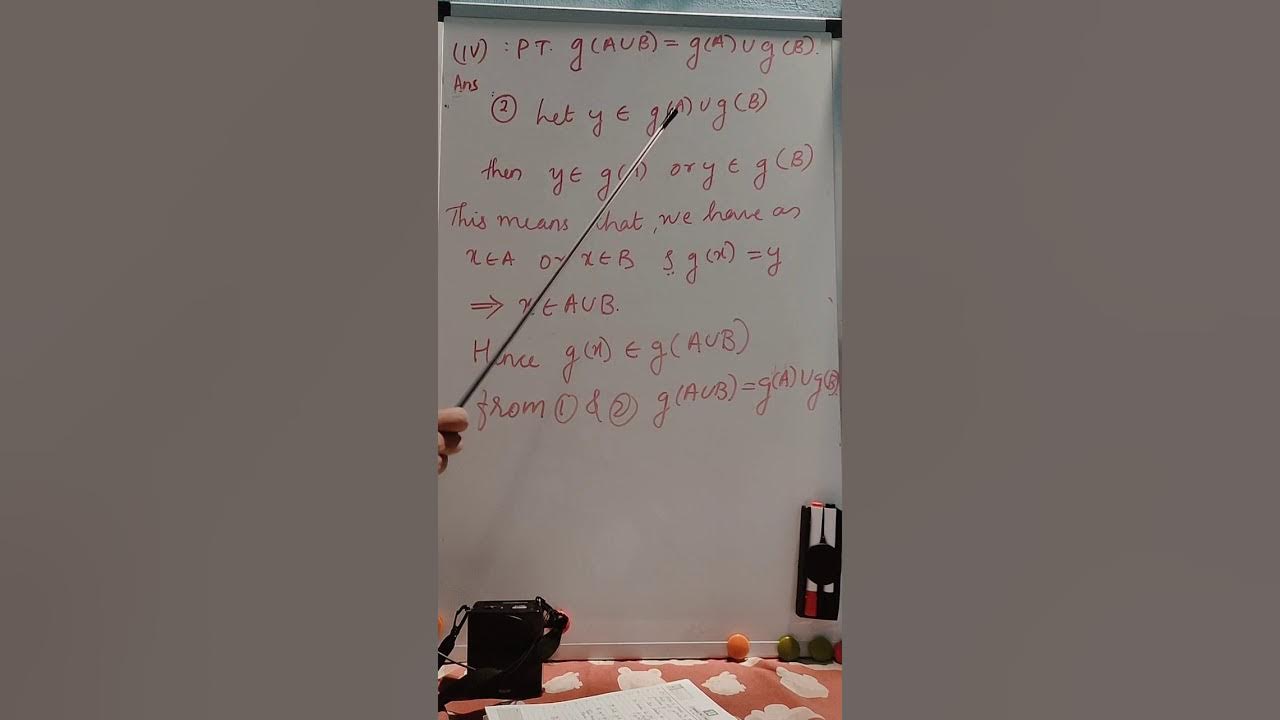 (IV) : PT. g(A∪B) = g(A) ∪ g(B).
Ans :
② Let y ∈ g(A) ∪ g(B)
then y ∈ g(A) or y ∈ g(B)
This means that, we have an
x ∈ A or x ∈ B ∋ g(x) = y
⇒ x ∈ A∪B.
Hence g(x) ∈ g(A∪B)
from ① & ② g(A∪B) = g(A) ∪ g(B)